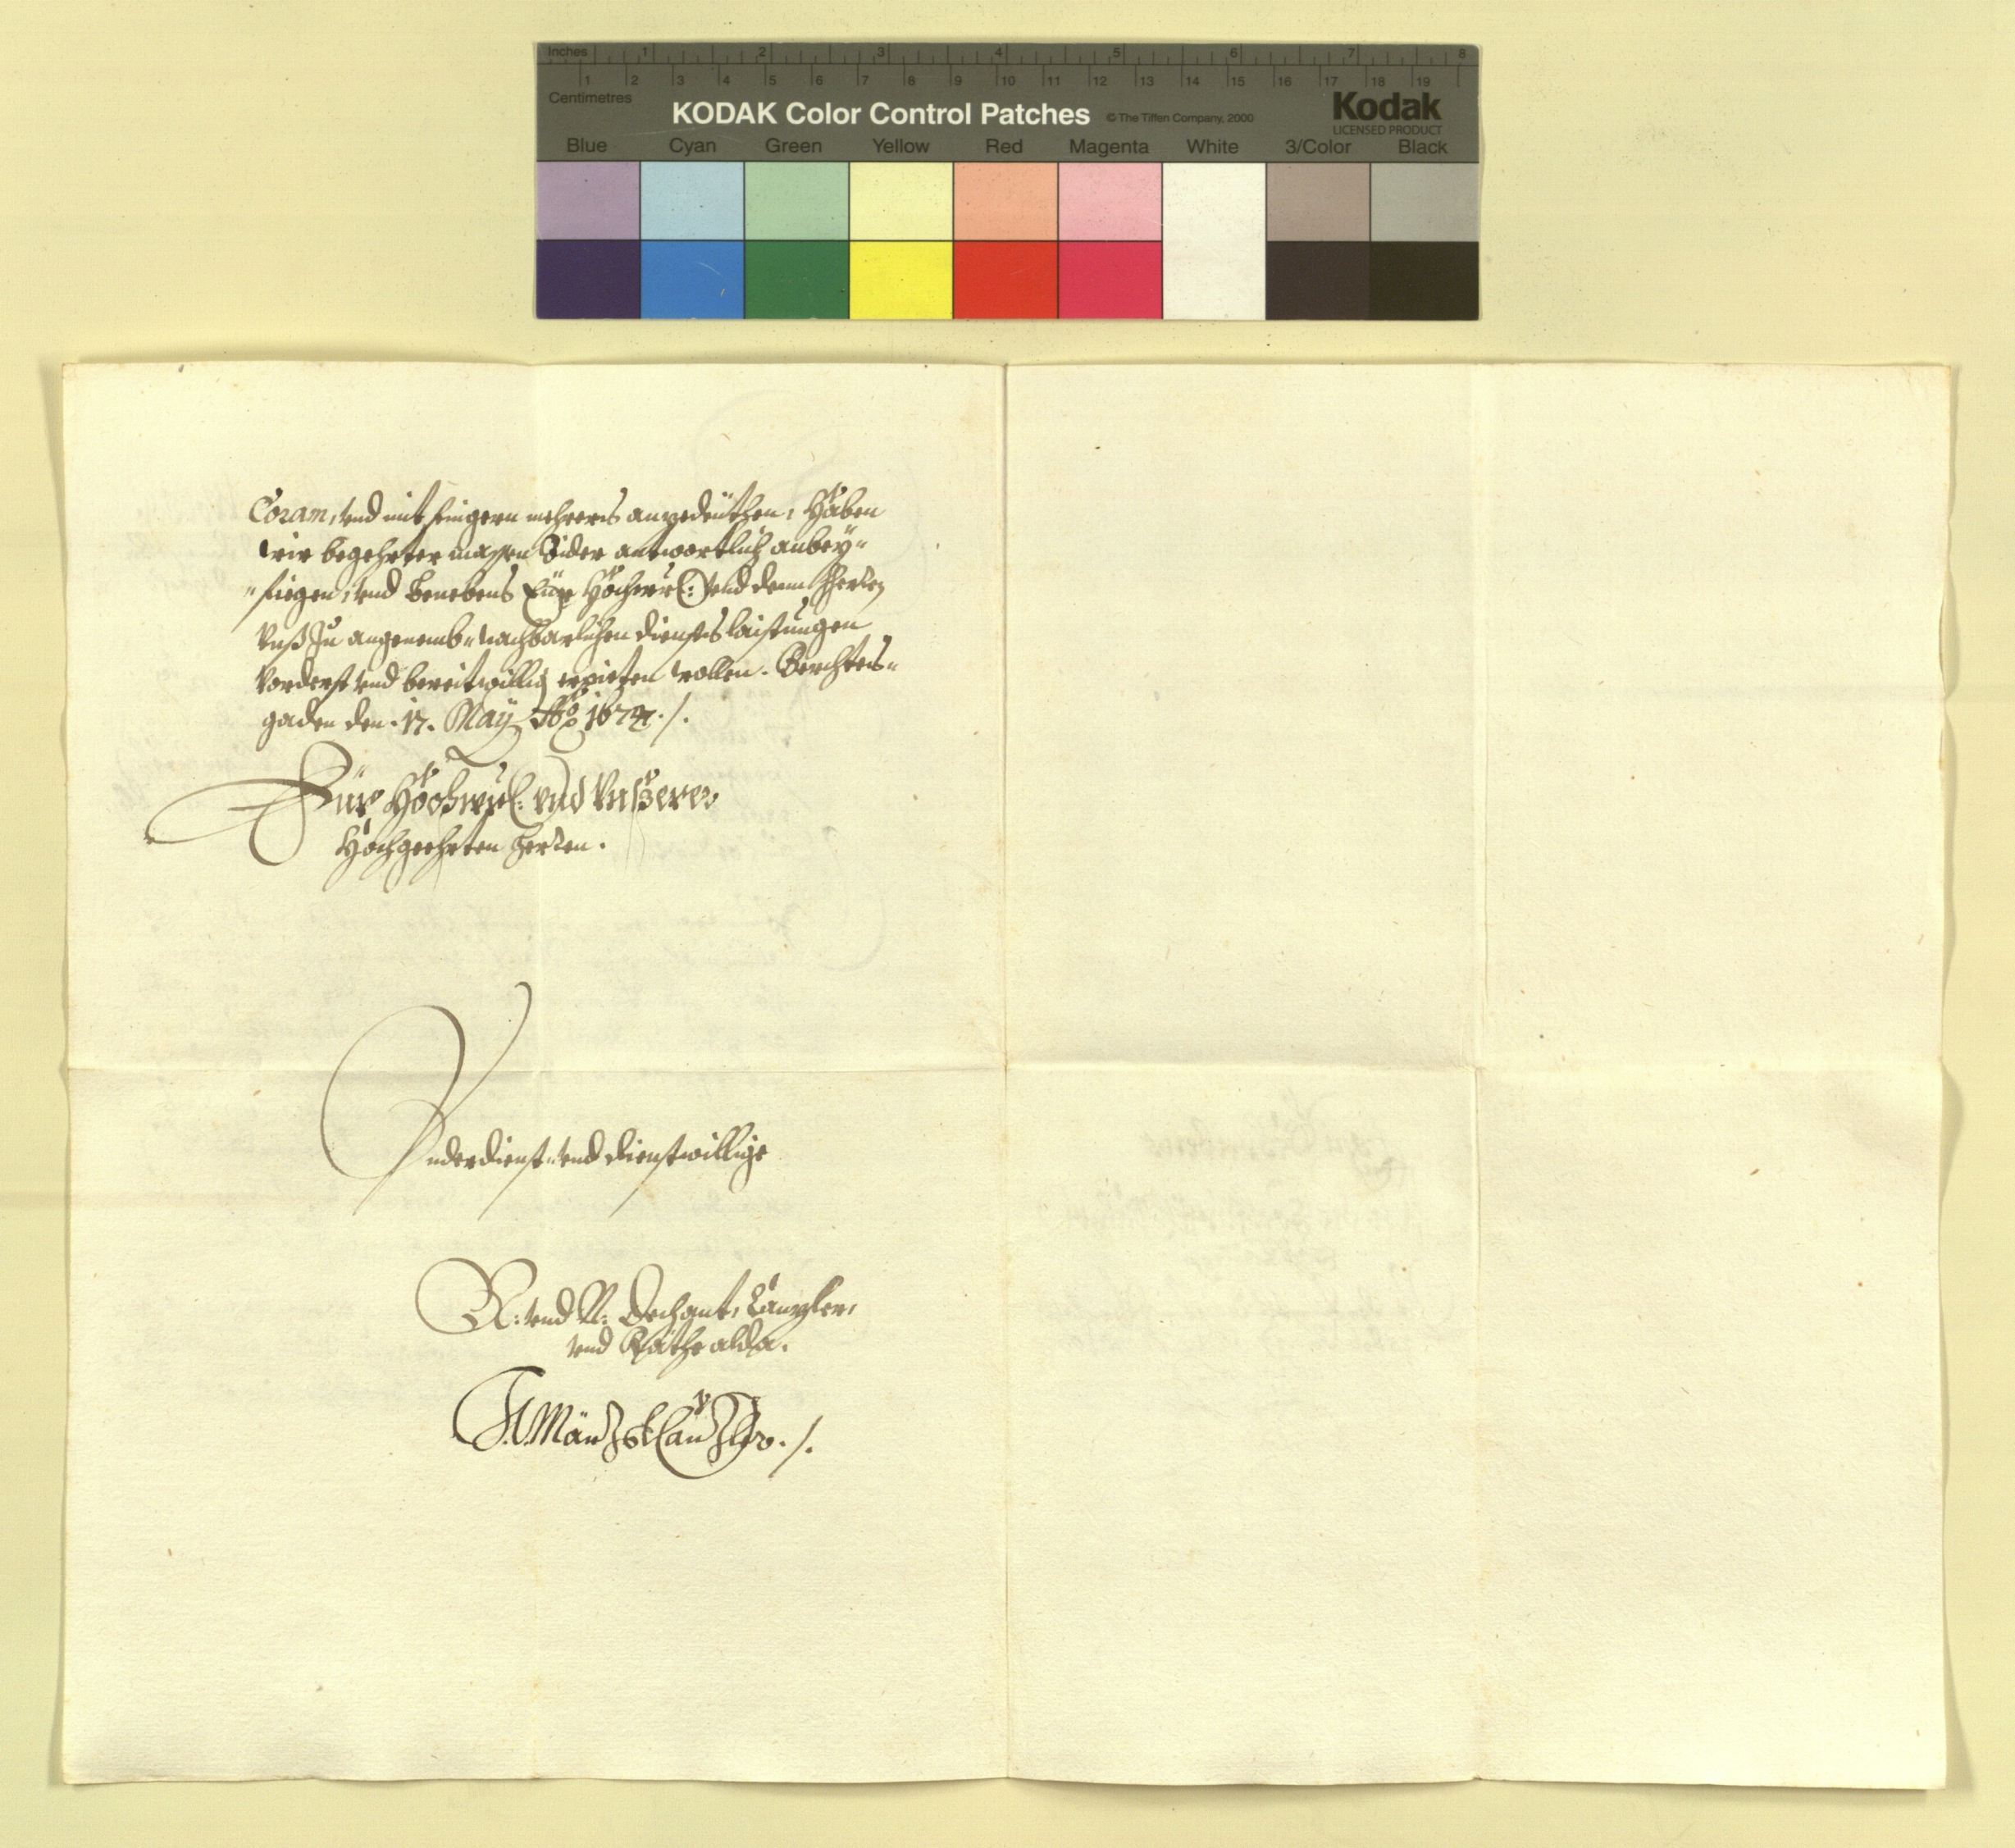 Inches 1 2 3 4 5 6 7 8
1 2 3 4 5 6 7 8 9 10 11 12 13 14 15 16 17 18 19
Centimetres
KODAK Color Control Patches © The Tiffen Company, 2000 Kodak
LICENSED PRODUCT
Blue Cyan Green Yellow Red Magenta White 3/Color Black
Coram, vnd mit mehrers angedeüthen, Haben
wir begehrter massen Sider antwortlich anbey-
-fiegen, vnd Benebens Eür Hochwürl: vnd denn Herren
Vnß Zu angenemb- nachbarlichen dienstslaistungen
Vorderst vnd bereitwillig erpieten wollen. Berchtes-
gaden den. 17. May Aõ
Eür Hochwürl: vnd Vnßerer
Hochgeehrten Herren.
Vnderdienst- vnd dienstwillige
N: vnd N: Dechant, Canzler,
vnd Räthe alda.
Canzler ./.